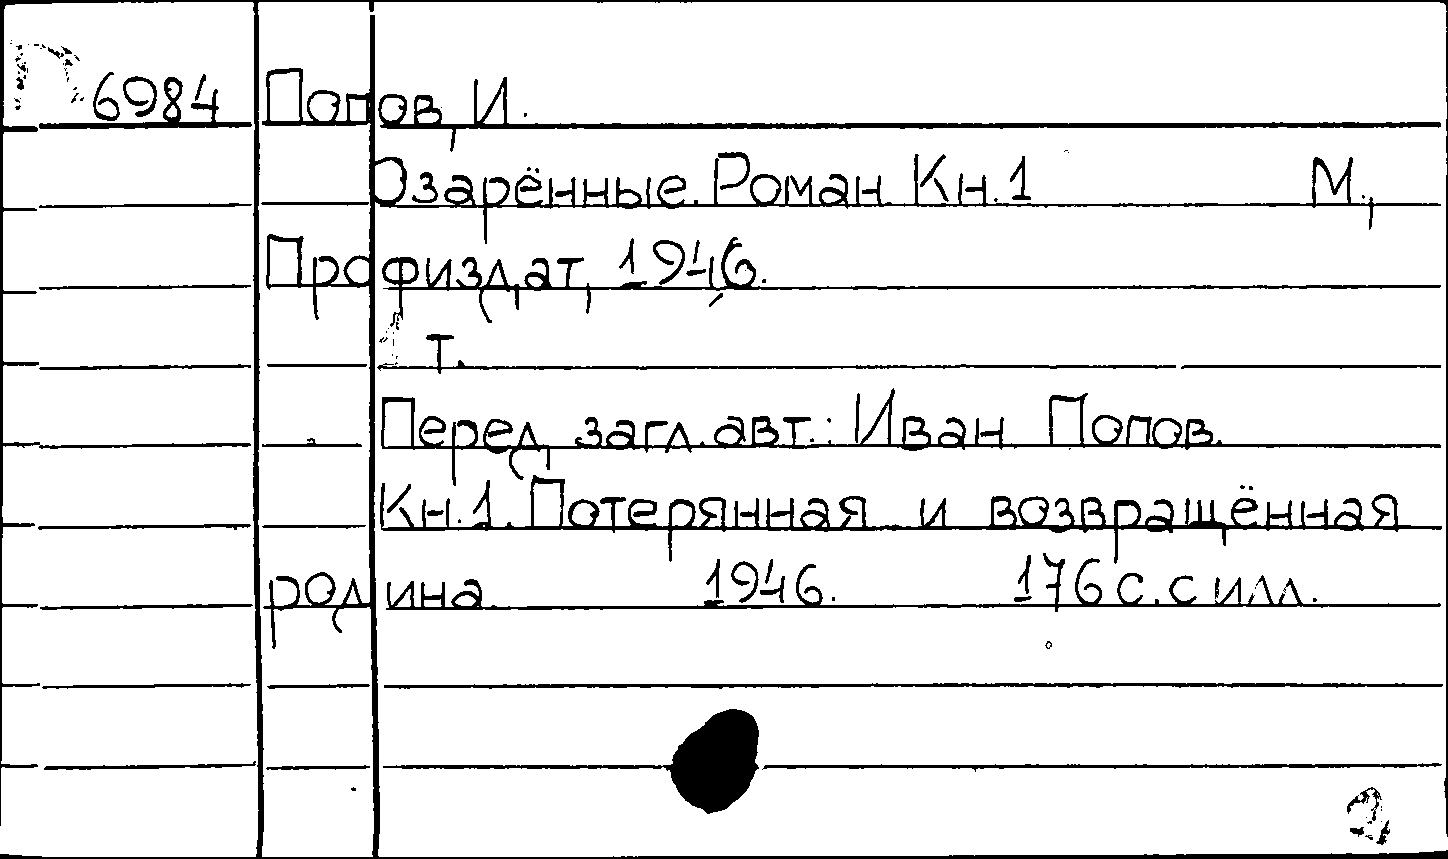 П 6984 Попов, И.
Озарённые. Роман. Кн. 1 М.,
Профиздат, 1946.
1 т.
Перед загл. авт.: Иван Попов.
Кн. 1. Потерянная и возвращённая
родина. 1946. 176 с. с илл.
2